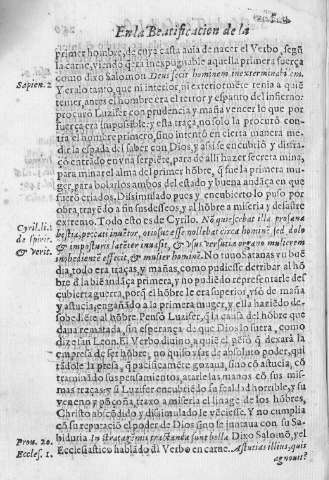 En la Beatificacion de la
primer hombre, de cuya casta auia de nacer el Verbo, segũ
la carne, viendo q̃ era inexpugnable aquella primera fuerça
como dixo Salomon. Deus fecit hominem inexterminabilem.
Sapien. 2
Y era lo tanto que ni interior, ni exteriormẽte tenia a quiẽ
temer, antes el hombre era el terror y espanto del infierno:
procuro Luzifer con prudencia y maña vencer lo que por
fuerça era impossible: y esta traça no solo la procuró con-
tra el hombre primero, sino intentó en cierta manera me-
dir la espada del saber con Dios, y assi se encubrió y disfra-
çó entrado en vna serpiẽte, para de alli hazer secreta mina,
para minar el alma del primer hõbre, q̃ fue la primera mu-
ger, para bolarlos ambos del estado y buena andãça en que
fuerõ criados, Dissimulado pues y encubierto lo puso por
obra, trayẽdo a ñn sus desseos, y al hõbre a miseria y desastre
extremo. Todo esto es de Cyrilo. Nõ quiescebat illa profana
Cyril. li. 1
bestia, peccati inuẽtor, otiosus esse nollebat circa hominẽ, sed dolo
de spirit.
& imposturis latẽter inuasit, & vsus versutia organo mulierem
& verit.
inobedientẽ effecit, & mulier hominẽ. No tuuo Satanas vn buẽ
dia, todo era traças, y mañas, como pudiesse derribar al hõ
bre d̃ la biẽ andãça primera, y no pudiẽdo representarle des
cubierta guerra, porq̃ el hõbre le era superior, vsó de maña
y astucia, engañãdo a la primera muger, y ella hariẽdo de-
sobediẽte al hõbre. Pensó Luzifer, q̃ la causa del hõbre que
daua rematada, sin esperança de que Dios lo fuera, como
dize san Leon. El Verbo diuino, a quiẽ el
empresa de ser hõbre, no quiso vsar de absoluto poder, qui
tãdole la presa, q̃ pacificamẽte gozaua, sino cõ astucia, cõ
traminãdo sus pensamientos, atarle las manos cõ sus mis-
mas traças: y si Luzifer encubriẽdo la fealdad horrible, y su
veneno y põçoña, traxo a miseria el linage de los hõbres,
Christo abscõdido y dissimulado le vẽciesse. Y no cumplia
cõ su reputaciõ el poder de Dios sino le juntaua con su Sa-
biduria In stratagemis tractanda sunt bella Dixo Salomõ, y el
Prou. 20.
Ecclesiastico hablãdo d̃l Verbo en carne. Astutias illius, quis
Eccles. 1.
agnouit?